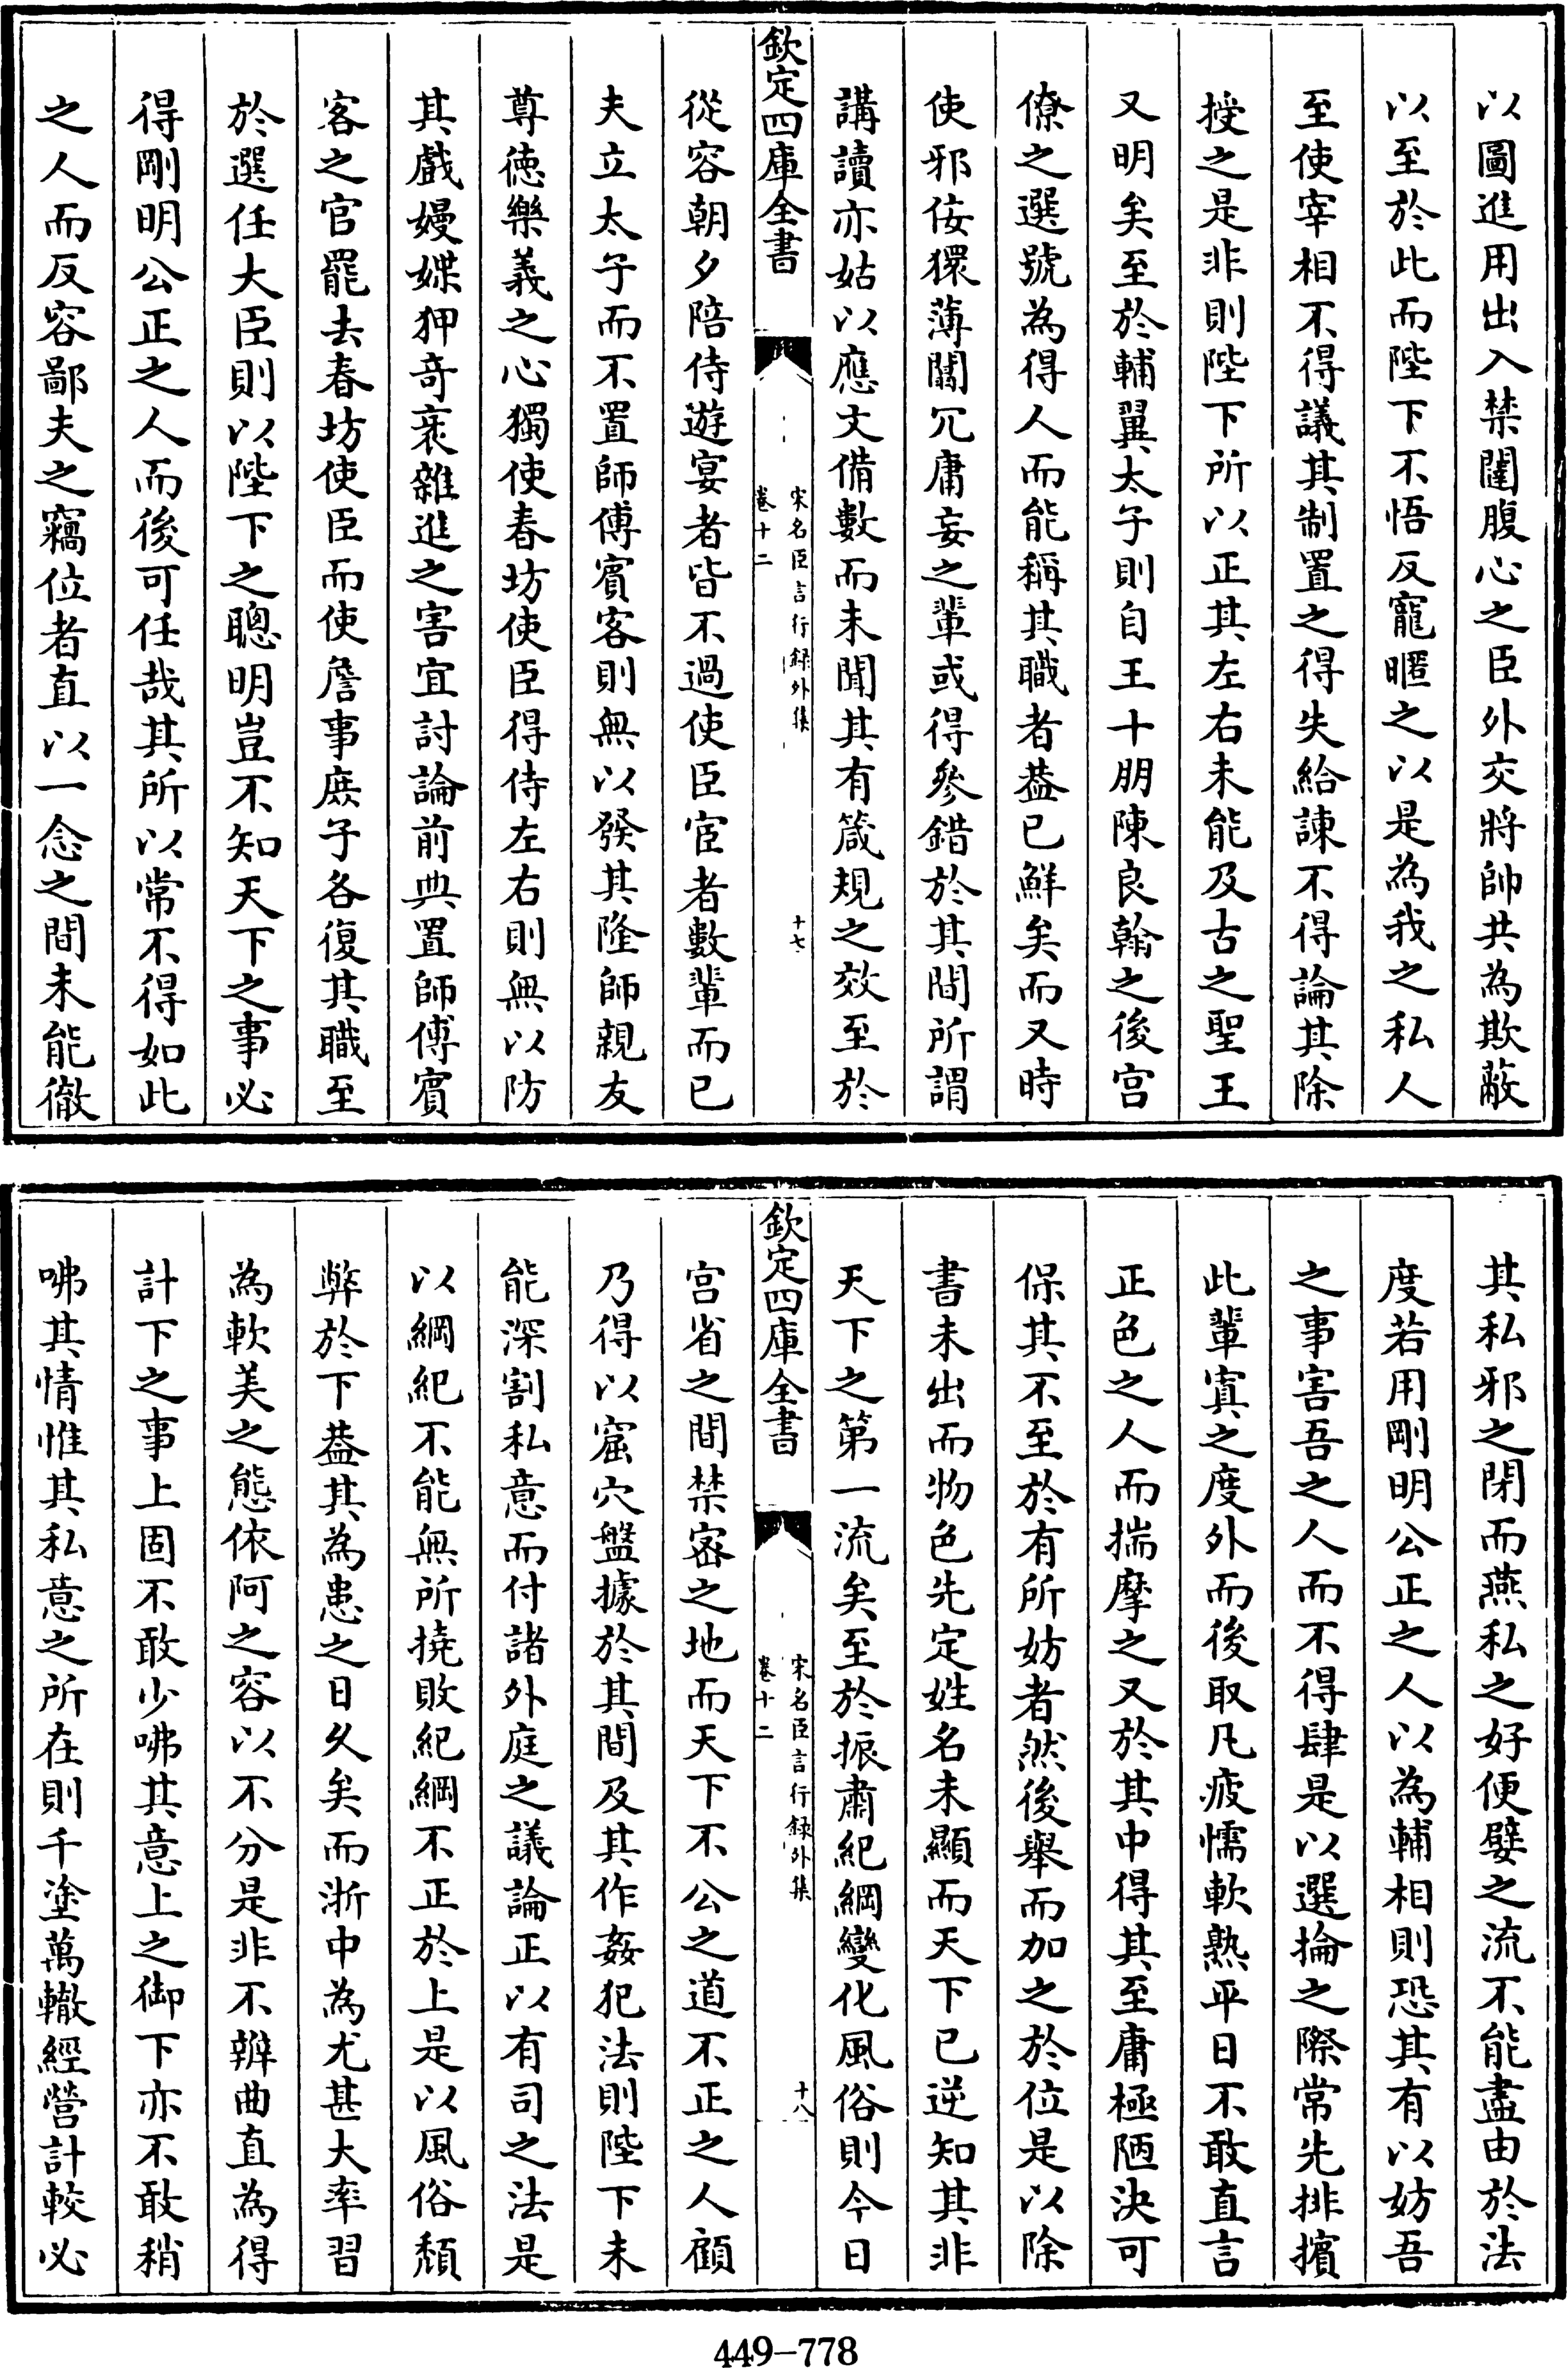 以圖進用出入禁闥腹心之臣外交將帥共為欺蔽
以至於此而陛下不悟反寵暱之以是為我之私人
至使宰相不得議其制置之得失給諫不得論其除
授之是非則陛下所以正其左右未能及古之聖王
又明矣至於輔翼太子則自王十朋陳良翰之後宫
僚之選號為得人而能稱其職者葢已鮮矣而又時
使邪佞獧薄闒冗庸妄之輩或得參錯於其間所謂
講讀亦姑以應文備數而未聞其有箴規之效至於
欽定四庫全書
宋名臣言行録外集
卷十二
十七
從容朝夕陪侍遊宴者皆不過使臣宦者數輩而已
夫立太子而不置師傅賓客則無以發其隆師親友
尊徳樂義之心獨使春坊使臣得侍左右則無以防
其戲嫚媟狎奇衺雜進之害宜討論前典置師傅賓
客之官罷去春坊使臣而使詹事庶子各復其職至
於選任大臣則以陛下之聰明豈不知天下之事必
得剛明公正之人而後可任哉其所以常不得如此
之人而反容鄙夫之竊位者直以一念之間未能徹
其私邪之閉而燕私之好便嬖之流不能盡由於法
度若用剛明公正之人以為輔相則恐其有以妨吾
之事害吾之人而不得肆是以選掄之際常先排擯
此輩寘之度外而後取凡疲懦軟熟平日不敢直言
正色之人而揣摩之又於其中得其至庸極陋決可
保其不至於有所妨者然後舉而加之於位是以除
書未出而物色先定姓名未顯而天下已逆知其非
天下之第一流矣至於振肅紀綱變化風俗則今日
欽定四庫全書
宋名臣言行録外集
卷十二
十八
宫省之間禁宻之地而天下不公之道不正之人顧
乃得以窟穴盤據於其間及其作姦犯法則陛下未
能深割私意而付諸外庭之議論正以有司之法是
以綱紀不能無所撓敗紀綱不正於上是以風俗頽
弊於下葢其為患之日久矣而浙中為尤甚大率習
為軟美之態依阿之容以不分是非不辨曲直為得
計下之事上固不敢少咈其意上之御下亦不敢稍
咈其情惟其私意之所在則千塗萬轍經營計較必
449-778